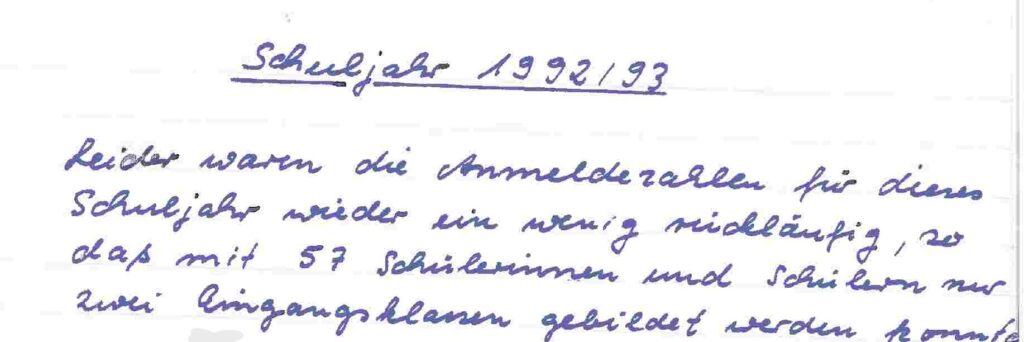 Schuljahr 1992/93
Leider waren die Anmeldezahlen für dieses
Schuljahr wieder ein wenig rückläufig, so
daß mit 57 Schülerinnen und Schülern nur
zwei Eingangsklassen gebildet werden konnte